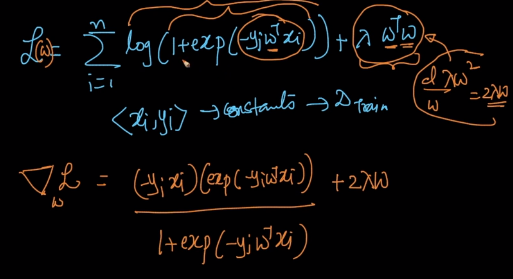 L(w) = Σ_{i=1}^{n} log(1+exp(-y_i w^T x_i)) + λ w^T w
d/w λw² = 2λw
<x_i, y_i> → constants → D_Train
∇_w L = (-y_i x_i)(exp(-y_i w^T x_i)) / 1+exp(-y_i w^T x_i) + 2λw